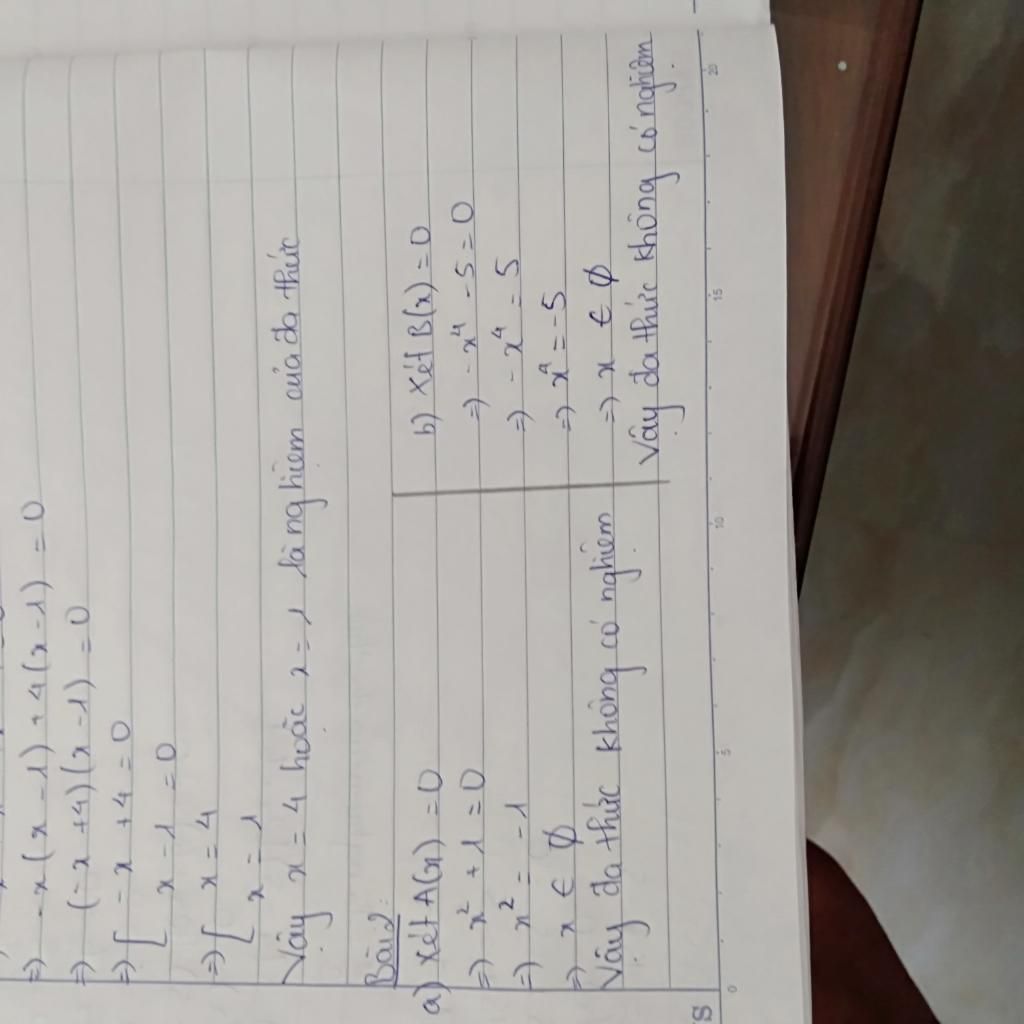 =) - x(x - 1) + 4(x - 1) = 0
=) (- x + 4)(x - 1) = 0
=) [ - x + 4 = 0
x - 1 = 0
=) [ x = 4
x = 1
Vậy x = 4 hoặc x = 1 là nghiệm của đa thức
Bài 2:
a) Xét A(x) = 0
=) x² + 1 = 0
=) x² = - 1
=) x ∈ ∅
Vậy đa thức không có nghiệm
b) Xét B(x) = 0
=) - x⁴ - 5 = 0
=) - x⁴ = 5
=) x⁴ = - 5
=) x ∈ ∅
Vậy đa thức không có nghiệm
0 5 10 15 20